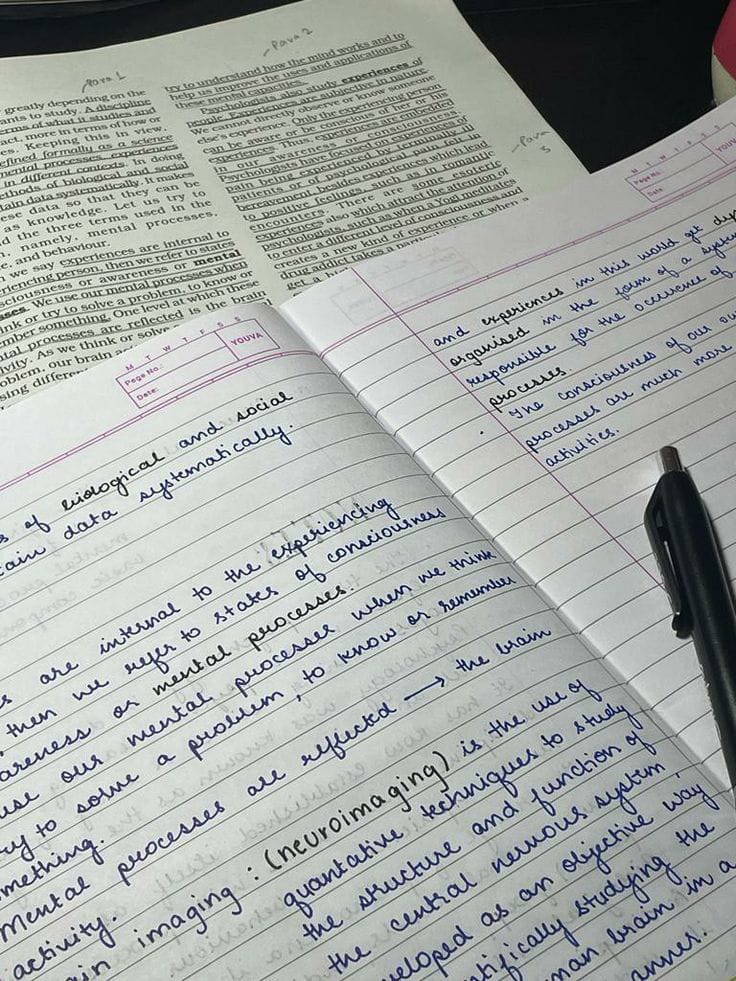 Para 1
greatly depending on the
ants to study. A discipline
erms of what it studies and
act, more in terms of how or
s. Keeping this in view,
efined formally as a science
mental processes, experiences
in different contexts. In doing
thods of biological and social
tain data systematically. It makes
ese data so that they can be
as knowledge. Let us try to
d the three terms used in the
, namely, mental processes,
e, and behaviour.
n we say experiences are internal to
eriencing person, then we refer to states
sciousness or awareness or mental
sses. We use our mental processes when
ink or try to solve a problem, to know or
mber something. One level at which these
tal processes are reflected is the brain
ivity. As we think or solve
oblem, our brain
sing differen
Para 2
try to understand how the mind works and to
help us improve the uses and applications of
these mental capacities.
Psychologists also study experiences of
people. Experiences are subjective in nature.
We cannot directly observe or know someone
else's experience. Only the experiencing person
can be aware or be conscious of her or his
experiences. Thus, experiences are embedded
in our awareness or consciousness.
Psychologists have focused on experiences of
pain being experienced by terminally ill
patients or of psychological pain felt in
bereavement, besides experiences which lead
to positive feelings, such as in romantic
encounters. There are some esoteric
experiences also which attract the attention of
psychologists, such as when a Yogi meditates
to enter a different level of consciousness and
creates a new kind of experience or when a
drug addict takes a
get a
Para
3
M T W T F S S
Page No.:
Date:
YOUVA
s of biological and social
tain data systematically.
s are internal to the experiencing
, then we refer to states of consciousness
areness or mental processes.
use our mental processes when we think
ry to solve a problem, to know or remember
mething.
Mental processes are reflected → the brain
activity.
in imaging : (neuroimaging) is the use of
quantative techniques to study
the structure and function of
the central nervous system,
veloped as an objective way
ntifically studying the
man brain in a
anner.
M T W T F S S
Page No.:
Date:
YOUVA
and experiences in this world get
organised in the form of a system
responsible for the occurence of
processes.
• The consciousness of our ow
processes are much more
activities.